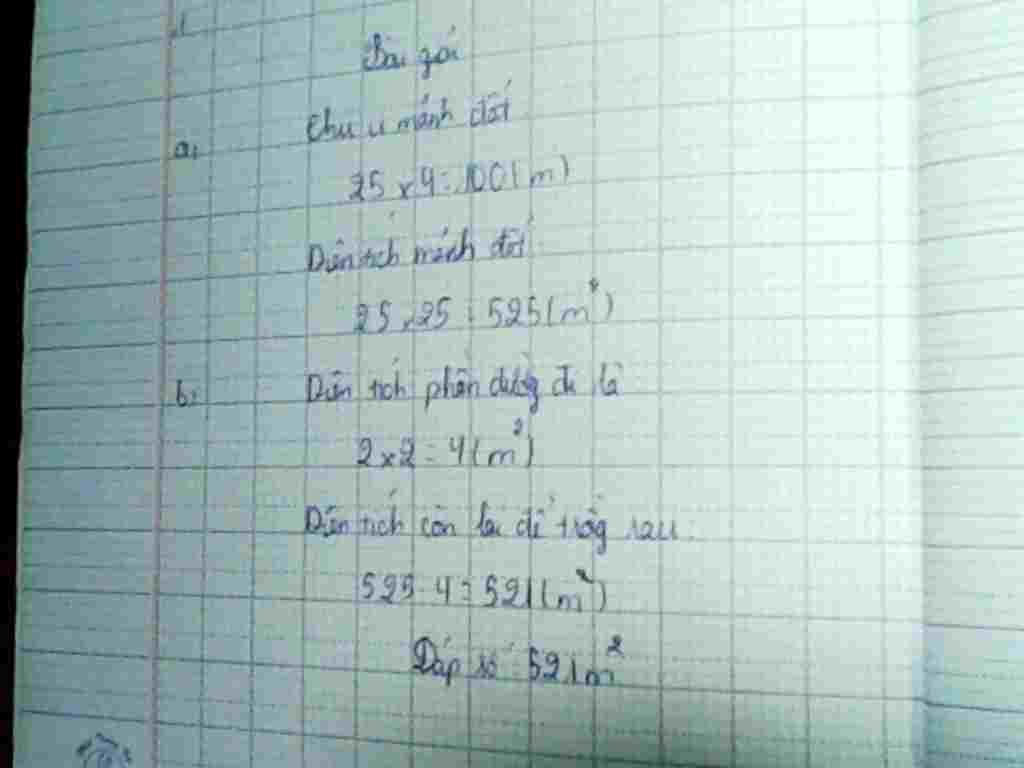 Bài giải
a, Chu vi mảnh đất
25 x 4 = 100 (m)
Diện tích mảnh đất
25 x 25 = 525 (m²)
b, Diện tích phần đường đi là
2 x 2 = 4 (m²)
Diện tích còn lại để trồng rau:
525 - 4 = 521 (m²)
Đáp số: 521 m²